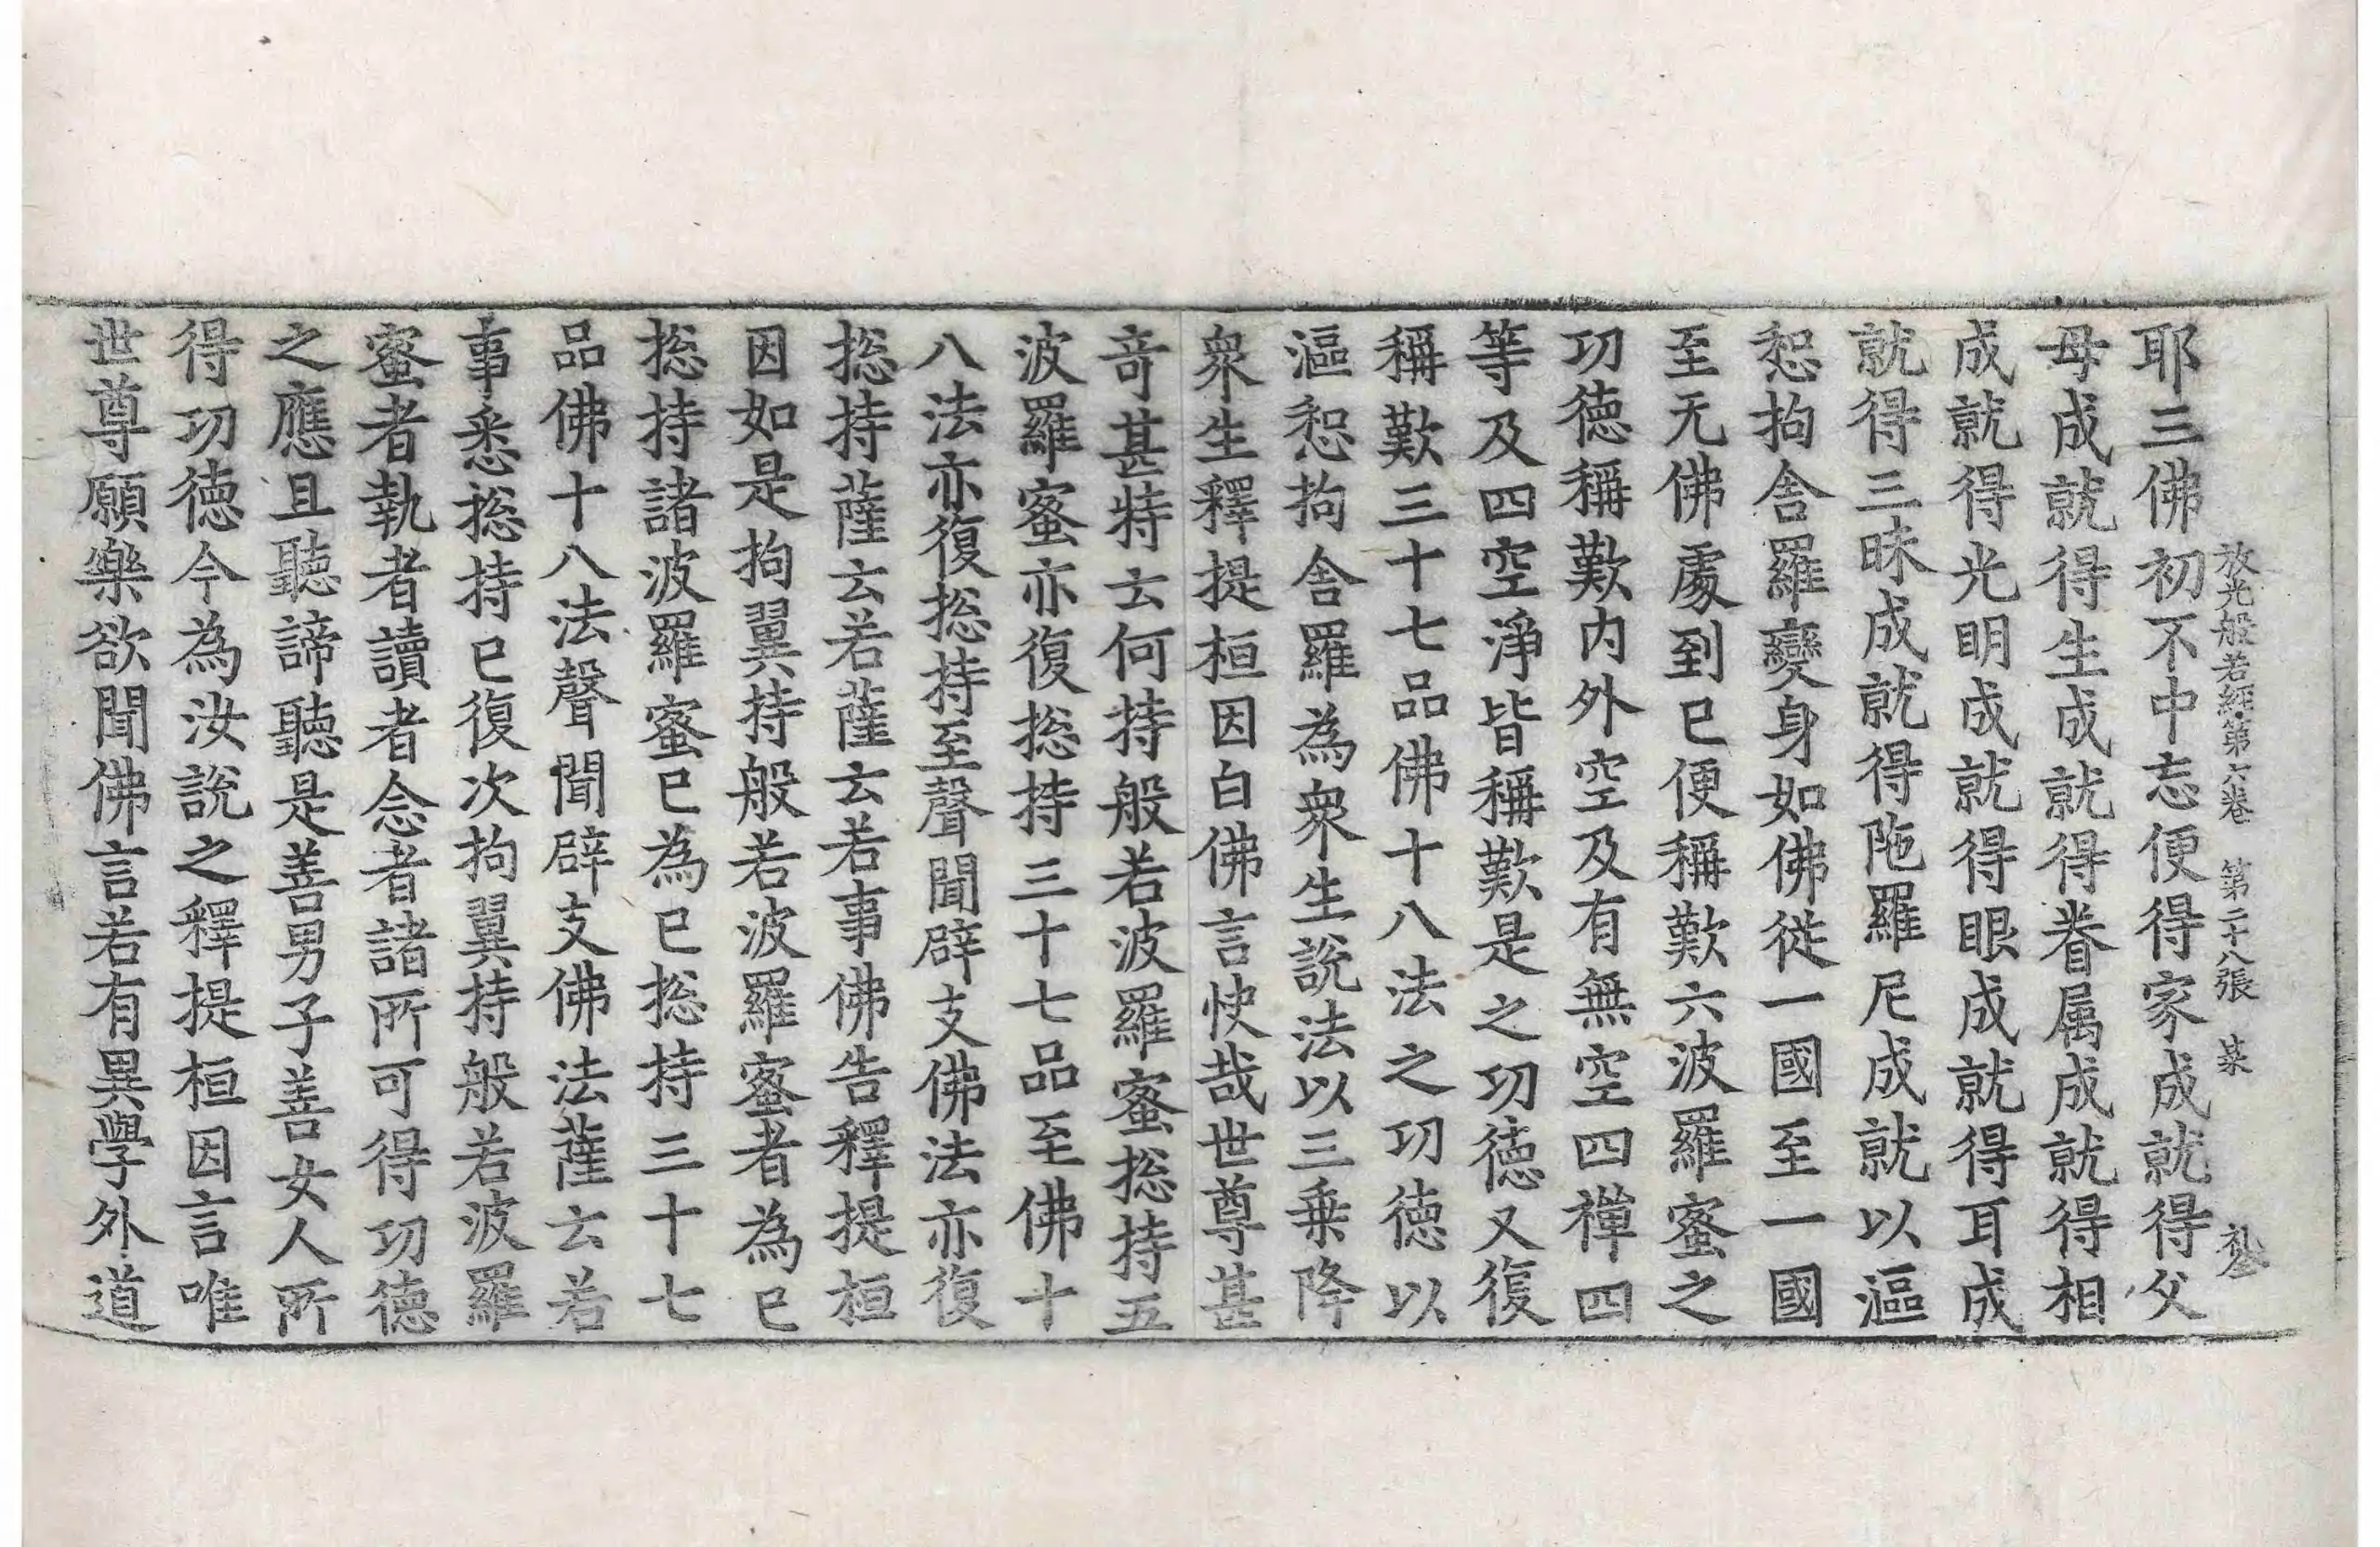 放光般若經第六卷　第二十八張　菜
耶三佛初不中忘便得家成就得父
母成就得生成就得眷属成就得相
成就得光明成就得眼成就得耳成
就得三昧成就得陁羅尼成就以漚
惒拘舍羅變身如佛從一國至一國
至无佛處到已便稱歎六波羅蜜之
功德稱歎內外空及有無空四禪四
等及四空淨皆稱歎是之功德又復
稱歎三十七品佛十八法之功德以
漚惒拘舍羅為衆生說法以三乗降
衆生釋提桓因白佛言快哉世尊甚
奇甚特云何持般若波羅蜜揔持五
波羅蜜亦復揔持三十七品至佛十
八法亦復揔持至聲聞辟支佛法亦復
揔持薩云若薩云若事佛告釋提桓
因如是拘翼持般若波羅蜜者為已
揔持諸波羅蜜已為已揔持三十七
品佛十八法聲聞辟支佛法薩云若
事悉揔持已復次拘翼持般若波羅
蜜者執者讀者念者諸所可得功德
之應且聽諦聽是善男子善女人所
得功德今為汝說之釋提桓因言唯
世尊願樂欲聞佛言若有異學外道